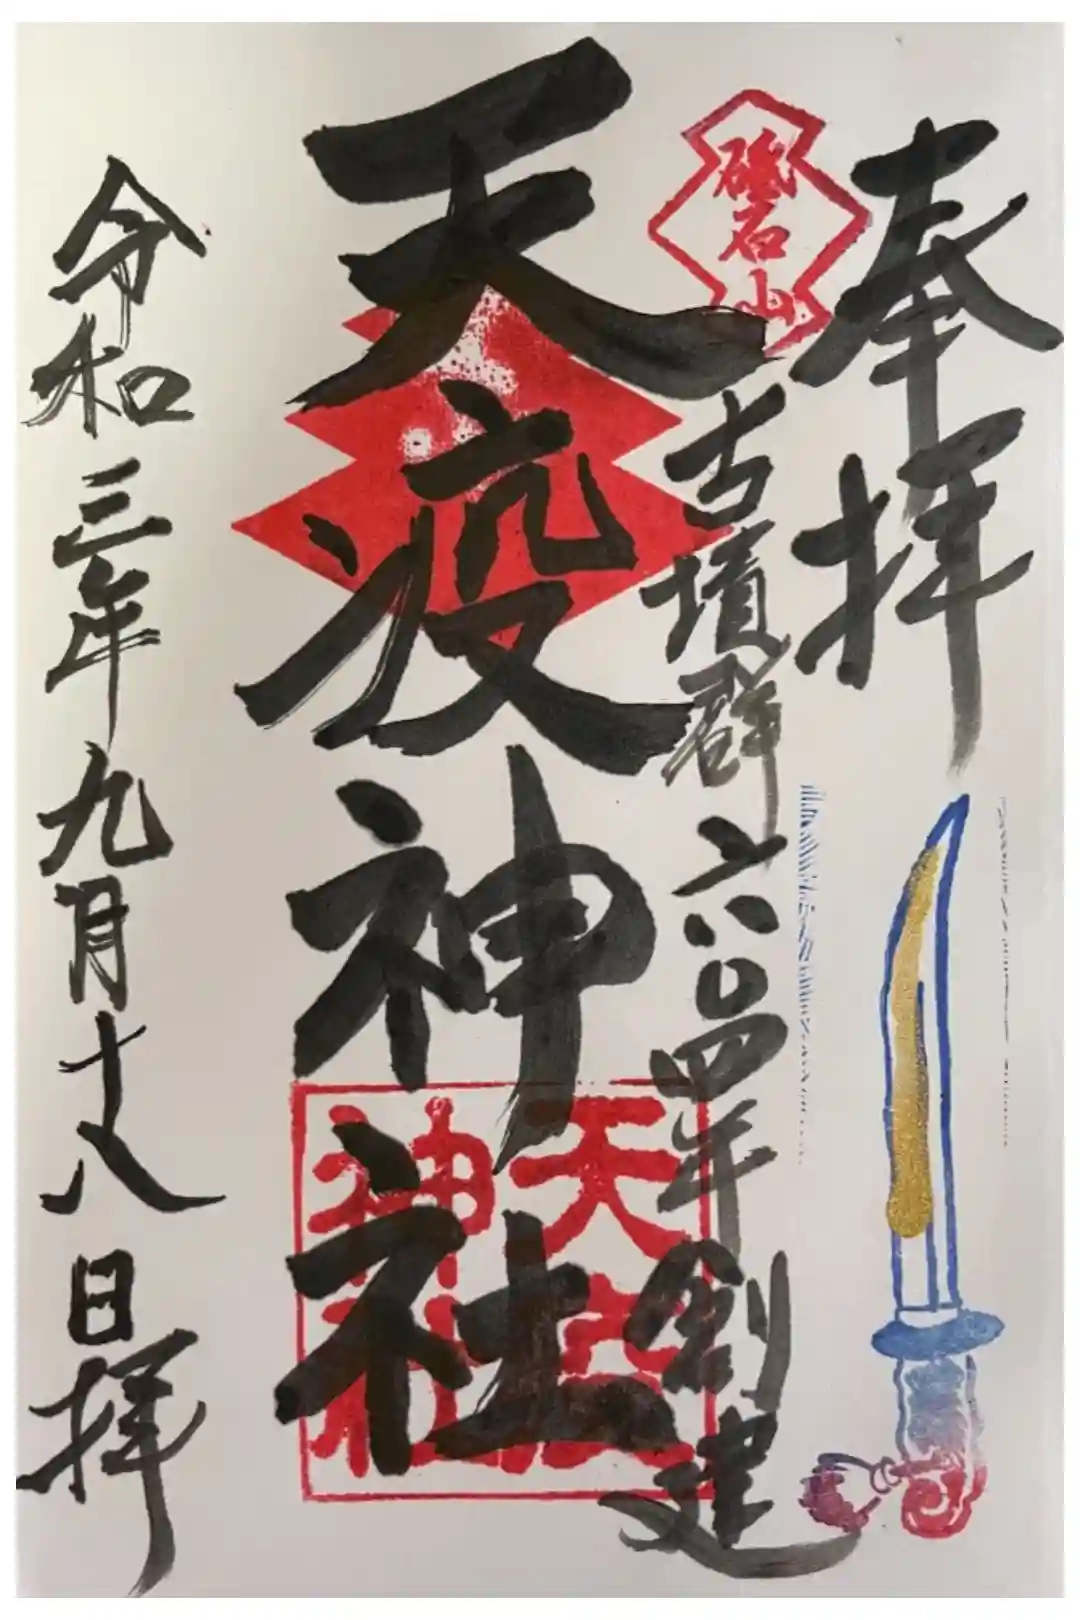 奉拝
砥石山
古墳群六〇四年創建
天疫神社
天疫
神社
令和三年九月十八日拝